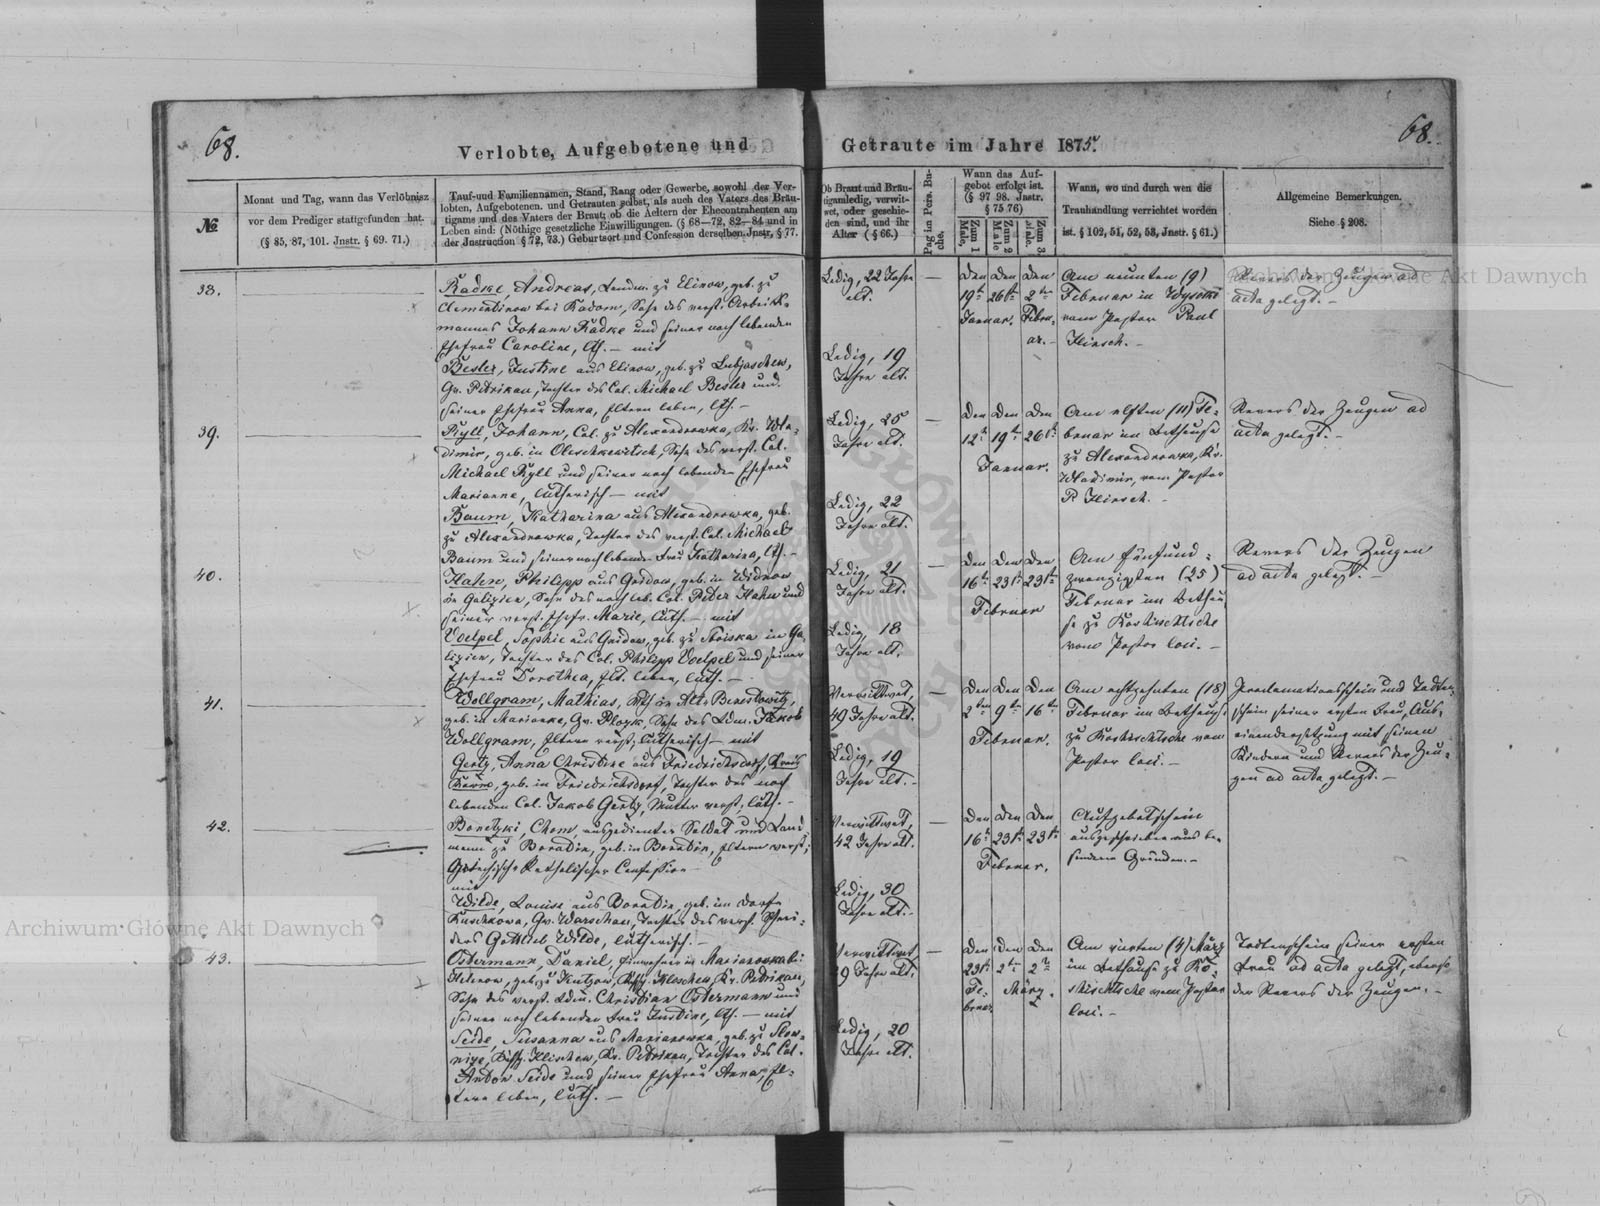 68.
Verlobte, Aufgebotene und
Getraute im Jahre 1875.
68.
№
Monat und Tag, wann das Verlöbniss
vor dem Prediger stattgefunden hat.
(§ 85, 87, 101. Jnstr. § 69. 71.)
Tauf-und Familiennamen, Stand, Rang oder Gewerbe, sowohl der Ver-
lobten, Aufgebotenen. und Getrauten selbst, als auch des Vaters des Bräu-
tigams und des Vaters der Braut; ob die Aeltern der Ehecontrahenten am
Leben sind: (Nöthige gesetzliche Einwilligungen. (§ 68—72, 82—84 und in
der Instruction § 72, 73.) Geburtsort und Confession derselben. Jnstr. § 77.
Ob Braut und Bräu-
tigam ledig, verwit-
wet, oder geschie-
den sind, und ihr
Alter (§ 66.)
Pag im Pers. Bu-
che.
Wann das Auf-
gebot erfolgt ist.
(§ 97 98. Jnstr.
§ 75 76)
Zum 1
Male.
Zum 2
Male
Zum 3
Male.
Wann, wo und durch wen die
Trauhandlung verrichtet worden
ist. § 102, 51, 52, 53, Jnstr. § 61.)
Allgemeine Bemerkungen.
Siehe § 208.
38.
Radke, Andreas, Landm. zu Elinow, geb. zu
Clementinow bei Radom, Sohn des verst. Arbeits-
mannes Johann Radke und seiner noch lebenden
Ehefrau Caroline, lth. — mit
Besler, Justine aus Elinow, geb. zu Lubjaschew,
Gv. Petrikau, Tochter des Col. Michael Besler und
seiner Ehefrau Anna, Eltern leben, lth. —
Ledig, 22 Jahre
alt.
Ledig, 19
Jahre alt.
—
Den Den Den
19ⁿ 26ⁿ 2ⁿ
Januar. Febru-
ar. —
Am neunten (9)
Februar in Wysokie
vom Pastor Paul
Hirsch. —
Revers der Zeugen ad
acta gelegt. —
39.
Ryll, Johann, Col. zu Alexandrowka, Kr. Wla-
dimir, geb. in Oleschkewitsch, Sohn des verst. Col.
Michael Ryll und seiner noch lebenden Ehefrau
Marianne, lutherisch — mit
Baum, Katharina aus Alexandrowka, geb.
zu Alexandrowka, Tochter des verst. Col. Michael
Baum und seiner noch lebenden Frau Katharina, lth. —
Ledig, 25
Jahre alt.
Ledig, 22
Jahre alt.
—
Den Den Den
12ⁿ 19ⁿ 26ⁿ
Januar.
Am elften (11) Fe-
bruar im Bethause
zu Alexandrowka, Kr.
Wladimir, vom Pastor
P. Hirsch. —
Revers der Zeugen ad
acta gelegt. —
40.
Hahn, Philipp aus Gnidow, geb. in
in Galizien, Sohn des noch leb. Col. Peter Hahn und
seiner verst. Ehefr. Marie, luth. — mit
Voelpel, Sophie aus Gnidow, geb. zu in Ga-
lizien, Tochter des Col. Philipp Voelpel und seiner
Ehefrau Dorothea, Elt. leben, luth. —
Ledig, 21
Jahre alt.
Ledig, 18
Jahre alt.
—
Den Den Den
16ⁿ 23ⁿ 23ⁿ
Februar
Am fünfund-
zwanzigsten (25)
Februar im Bethau-
se zu Roshischtsche
vom Pastor loci. —
Revers der Zeugen
ad acta gelegt. —
41.
Wollgram, Mathias, in Alt-
geb. in Marianke, Gv. Plozk, Sohn des Ldm. Jakob
Wollgram, Eltern verst., lutherisch — mit
Gertz, Anna Christine aus Friedrichsdorf, Kreis
geb. in Friedrichsdorf, Tochter des noch
lebenden Col. Jakob Gertz, Mutter verst., luth. —
Verwittwet,
49 Jahre alt.
Ledig, 19
Jahre alt. —
—
Den Den Den
2ⁿ 9ⁿ 16ⁿ
Februar.
Am achtzehnten (18)
Februar im Bethause
zu Roshischtsche vom
Pastor loci. —
Proclamationsschein und Todten-
schein seiner ersten Frau, Aus-
einandersetzung mit seinen
Kindern und Revers der Zeu-
gen ad acta gelegt. —
42.
Boretzki, Chom, ausgedienter Soldat und Land-
mann zu Boradin, geb. in Boradin, Eltern verst.,
Griechisch-Katholischer Confession —
mit
Wilde, Louise aus Boradin, geb. im Dorfe
Kuschkowa, Gv. Warschau, Tochter des verst. Schnei-
ders Gottlieb Wilde, lutherisch. —
Verwittwet,
42 Jahre alt.
Ledig, 30
Jahre alt. —
—
Den Den Den
16ⁿ 23ⁿ 23ⁿ
Februar.
Aufgebotschein
ausgeschrieben aus be-
sonderen Gründen. —
43.
Ostermann, Daniel, Einwohner in Marianowka bei
Helenow, geb. zu Kr. Petrikau,
Sohn des verst. Ldm. Christian Ostermann und
seiner noch lebenden Frau Justine, lth. — mit
Seide, Susanna aus Marianowka, geb. zu Slow-
Kr. Petrikau, Tochter des Col.
Anton Seide und seiner Ehefrau Anna, El-
tern leben, luth. —
Verwittwet
29 Jahre alt.
Ledig, 20
Jahre alt.
—
Den Den Den
23ⁿ 2ⁿ 2ⁿ
Fe- März.
bruar
Am vierten (4) März
im Bethause zu Ro-
shischtsche vom Pastor
loci. —
Todtenschein seiner ersten
Frau ad acta gelegt, ebenso
der Revers der Zeugen. —
Archiwum Główne Akt Dawnych
Archiwum Główne Akt Dawnych